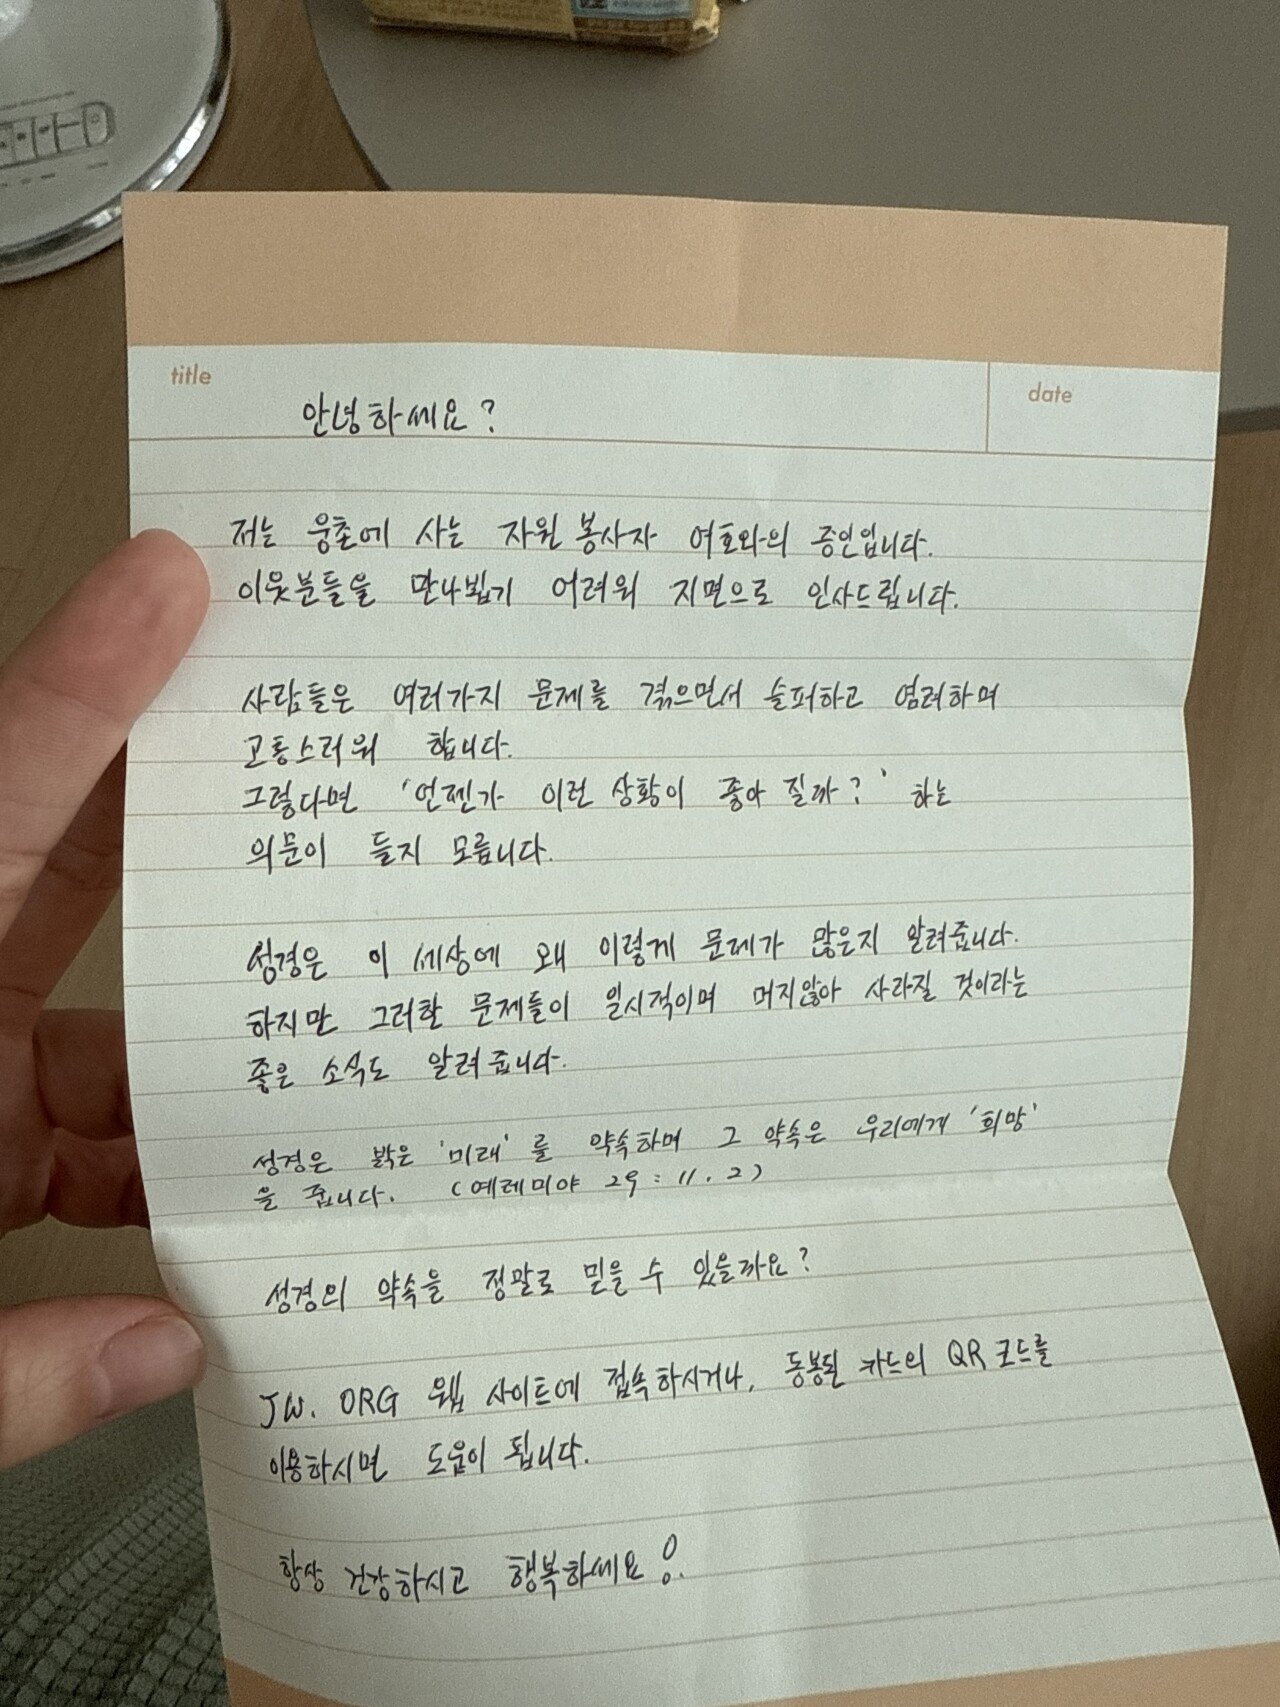 title
date
안녕하세요?
저는 웅촌에 사는 자원 봉사자 여호와의 증인입니다.
이웃분들을 만나뵙기 어려워 지면으로 인사드립니다.
사람들은 여러가지 문제를 겪으면서 슬퍼하고 염려하며
고통스러워 합니다.
그렇다면 '언젠가 이런 상황이 좋아 질까?' 하는
의문이 들지 모릅니다.
성경은 이 세상에 왜 이렇게 문제가 많은지 알려줍니다.
하지만 그러한 문제들이 일시적이며 머지않아 사라질 것이라는
좋은 소식도 알려 줍니다.
성경은 밝은 '미래'를 약속하며 그 약속은 우리에게 '희망'
을 줍니다. (예레미야 29:11.2)
성경의 약속을 정말로 믿을 수 있을까요?
JW. ORG 웹 사이트에 접속하시거나, 동봉된 카드의 QR코드를
이용하시면 도움이 됩니다.
항상 건강하시고 행복하세요!